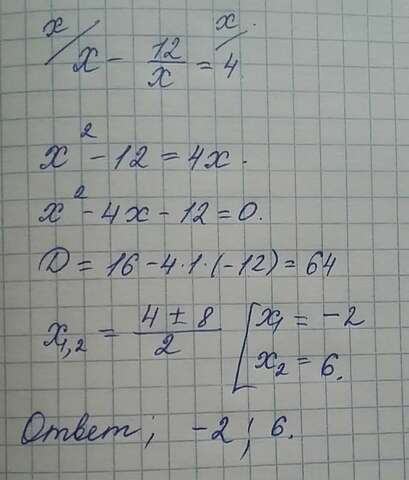 x x.
x - 12/x = 4
x² - 12 = 4x.
x² - 4x - 12 = 0.
D = 16 - 4·1·(-12) = 64
x₁,₂ = (4 ± 8)/2 [x₁ = -2
x₂ = 6.
Ответ; -2; 6.